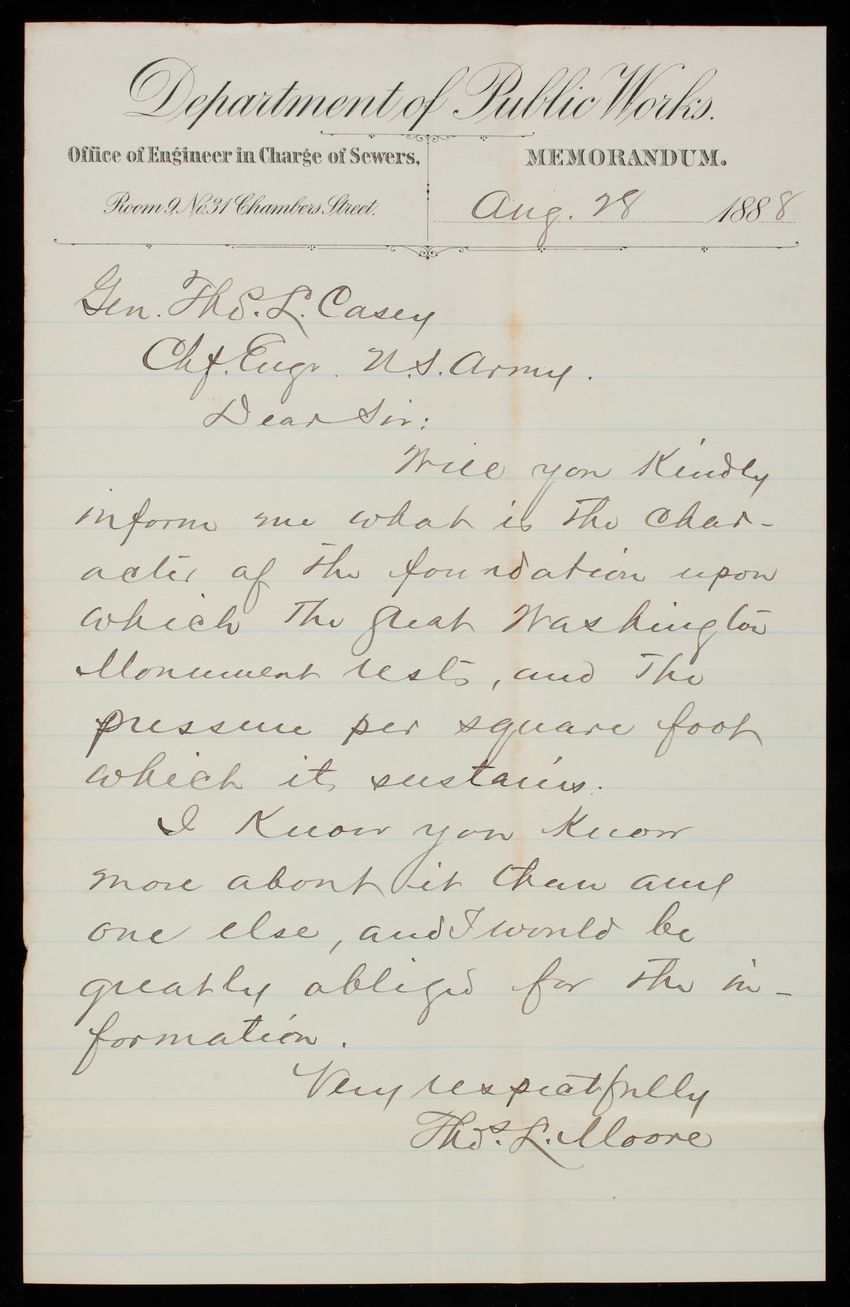 Department of Public Works.
Office of Engineer in Charge of Sewers,
Room 9, No. 31 Chambers Street.
MEMORANDUM.
Aug. 28 1888
Gen. Thos. L. Casey
Chf. Engr. U.S. Army.
Dear Sir:
Will you Kindly
inform me what is the char-
acter of the foundation upon
which the great Washington
Monument rests, and the
pressure per square foot
which it sustains.
I Know you Know
more about it than any
one else, and I would be
greatly obliged for the in-
formation.
Very respectfully
Thos. L. Moore